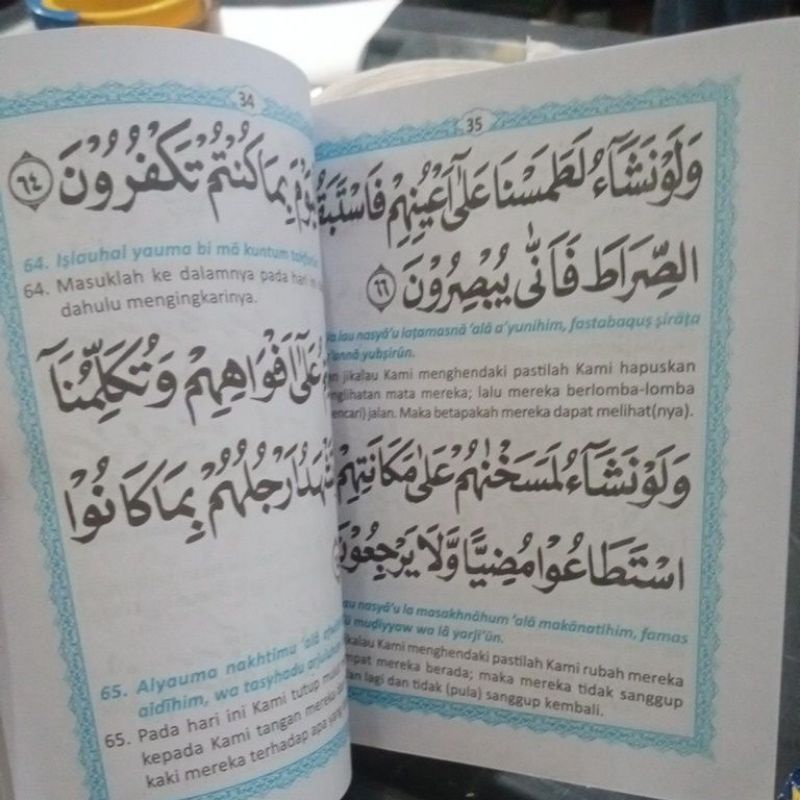 34
بِمَا كُنْتُمْ تَكْفُرُوْنَ ٦٤
64. Iṣlauhal yauma bi mā kuntum
64. Masuklah ke dalamnya pada hari
dahulu mengingkarinya.
عَلٰٓى اَفْوَاهِهِمْ وَتُكَلِّمُنَآ
اَرْجُلُهُمْ بِمَا كَانُوْا
65. Alyauma nakhtimu 'alā
aidīhim, wa tasyhadu
65. Pada hari ini Kami tutup
kepada Kami tangan mereka
kaki mereka terhadap apa yang
35
وَلَوْ نَشَآءُ لَطَمَسْنَا عَلٰٓى اَعْيُنِهِمْ
الصِّرَاطَ فَاَنّٰى يُبْصِرُوْنَ ٦٦
lau nasyā'u laṭamasnā 'alā a'yunihim, fastabaquṣ ṣirāṭa
yubṣirūn.
jikalau Kami menghendaki pastilah Kami hapuskan
mata mereka; lalu mereka berlomba-lomba
jalan. Maka betapakah mereka dapat melihat(nya).
وَلَوْ نَشَآءُ لَمَسَخْنٰهُمْ عَلٰى مَكَانَتِهِمْ
اسْتَطَاعُوْا مُضِيًّا وَّلَا يَرْجِعُوْنَ
nasyā'u la masakhnāhum 'alā makānatihim, famas
muḍiyyaw wa lā yarji'ūn.
jikalau Kami menghendaki pastilah Kami rubah mereka
mereka berada; maka mereka tidak sanggup
lagi dan tidak (pula) sanggup kembali.